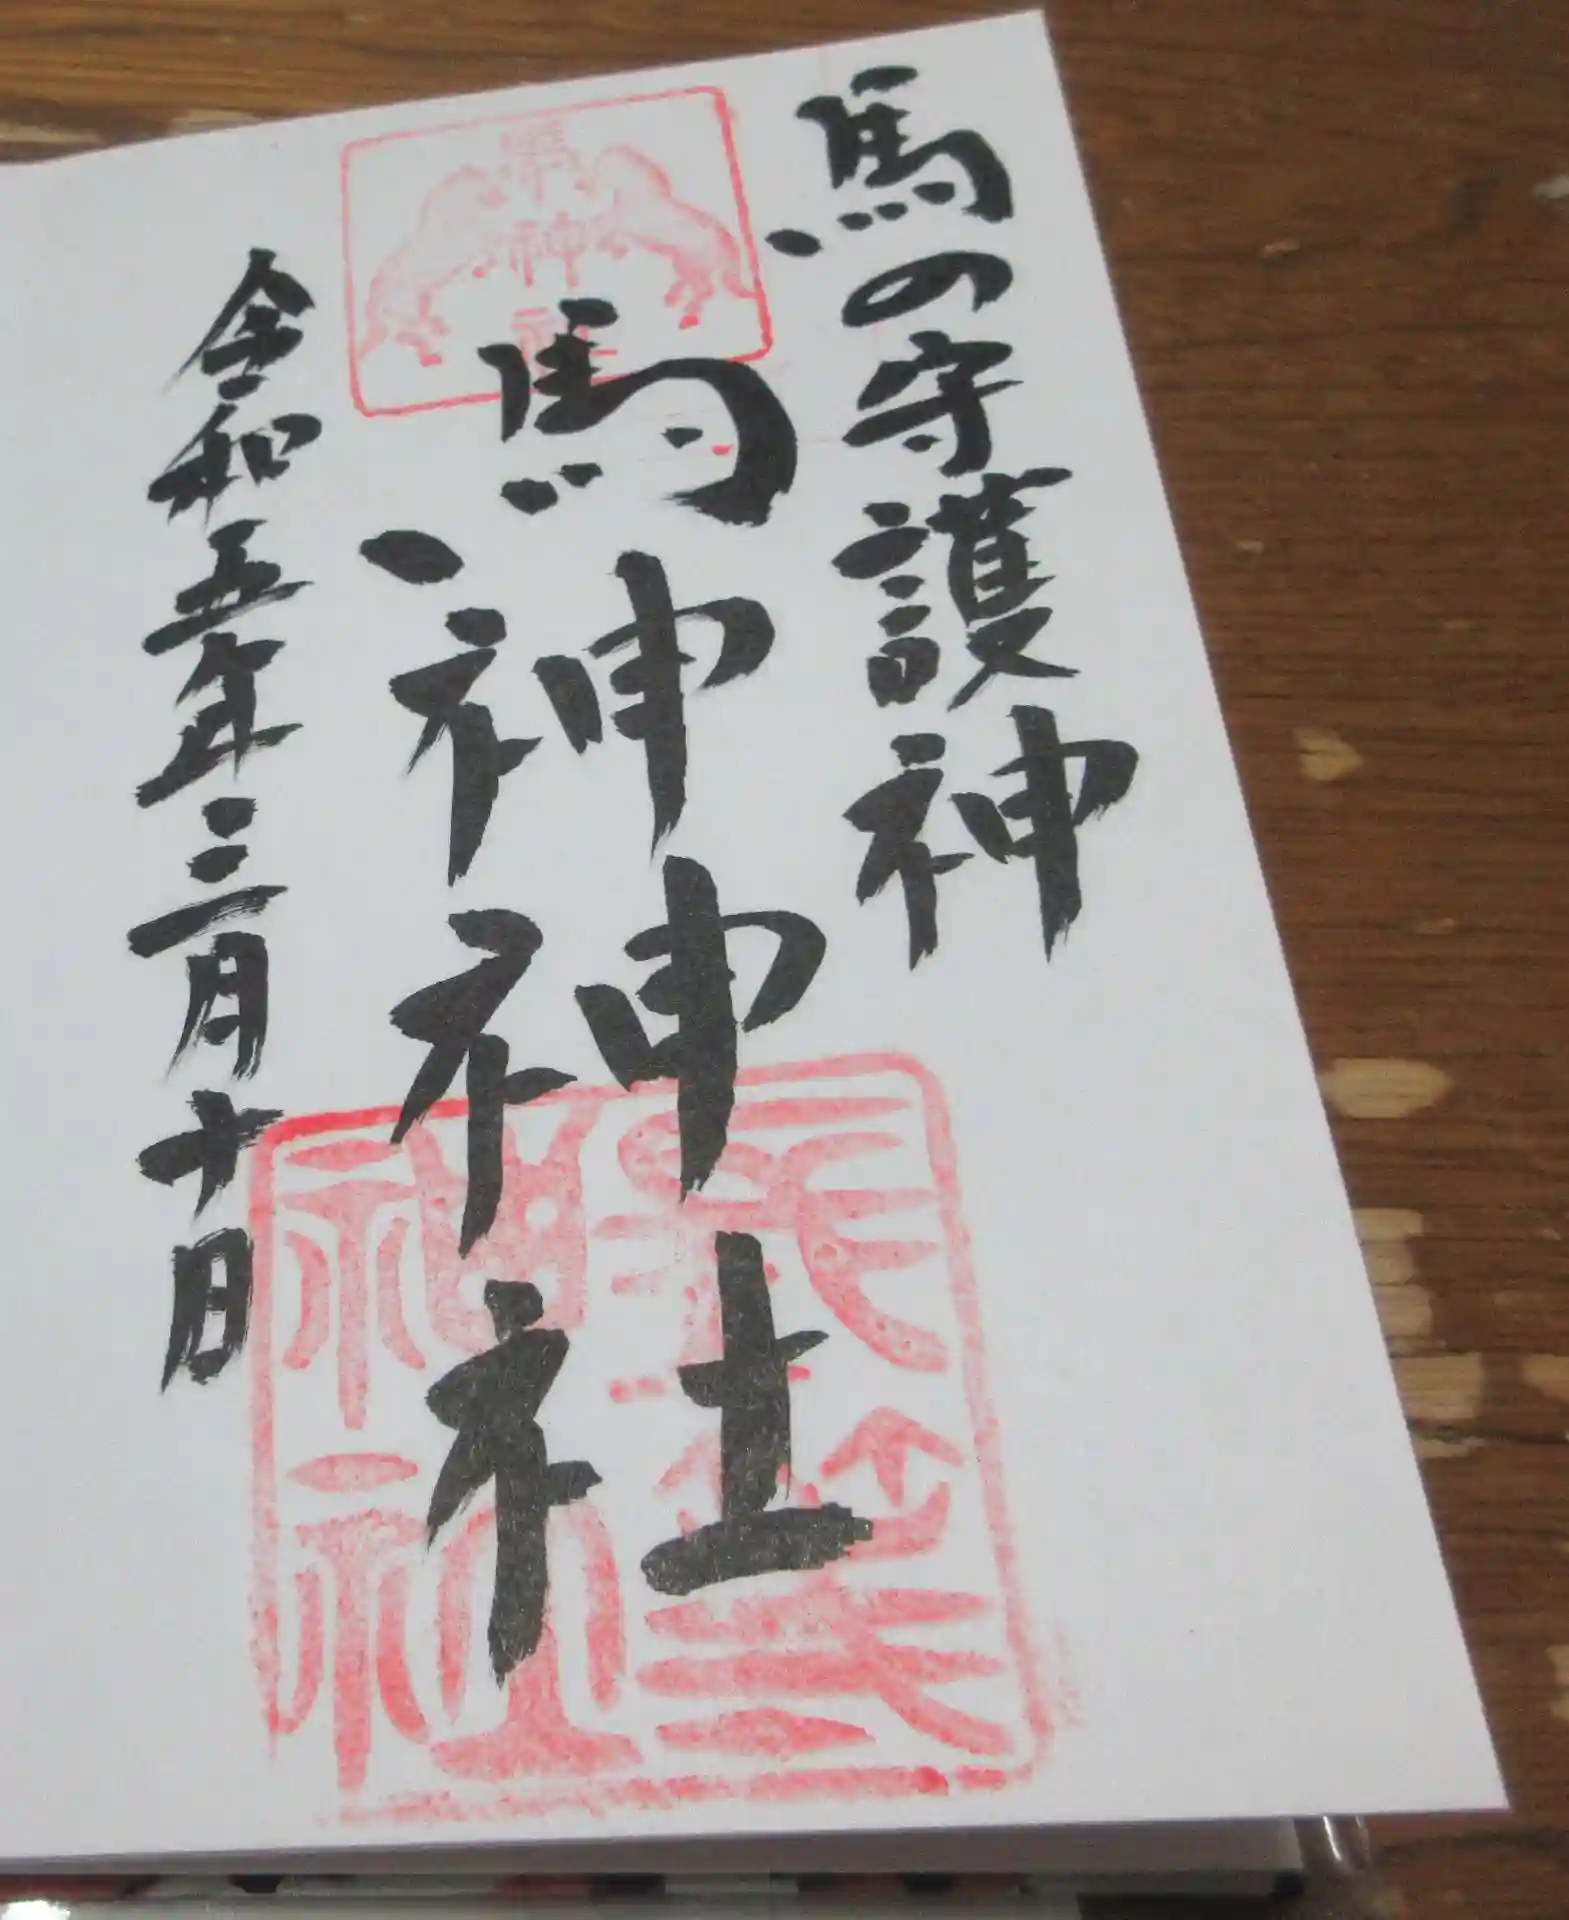 馬の守護神
馬神神社
令和五年三月十日
馬神社